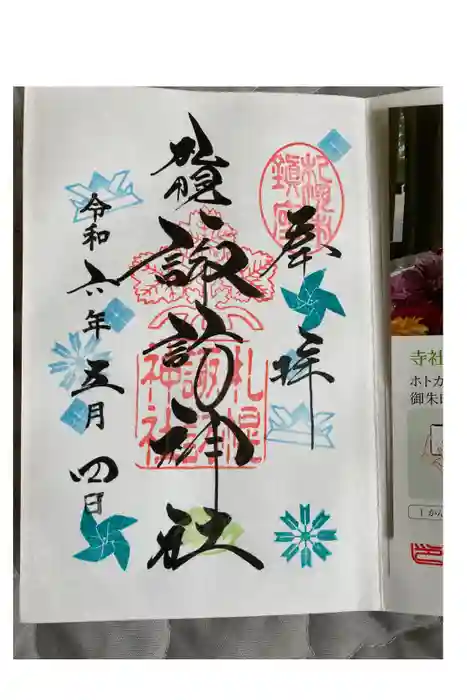 奉拝
札幌諏訪神社
札幌諏訪神社
令和六年五月四日
寺社
ホトカ
御朱印